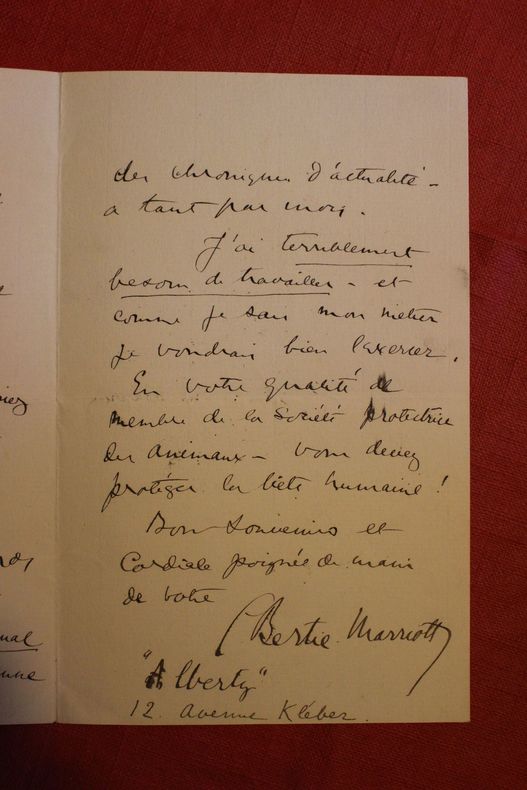 des chroniques d'actualité -
a tant par mois.
J'ai terriblement
besoin de travailler - et
comme je sais mon métier
je voudrais bien l'exercer.
En votre qualité de
membre de la Société protectrice
des animaux - vous devez
protéger la bête humaine !
Bon souvenirs et
Cordiale poignée de main
de votre
Bertie Marriott
"Alberty"
12. Avenue Kléber.